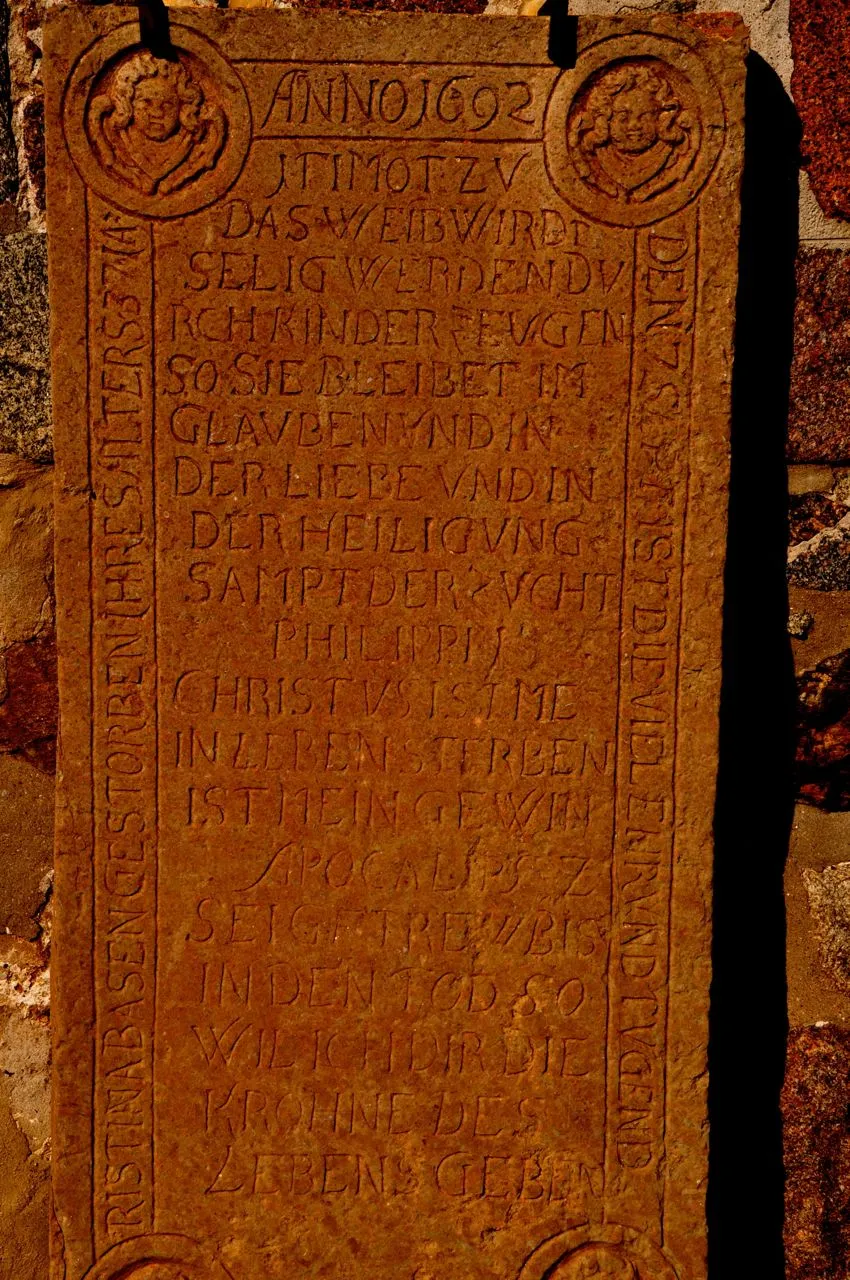 ANNO 1692
J TIMOT ZV
DAS WEIB WIRDT
SELIG WERDEN DV
RCH KINDER ZEVGEN
SO SIE BLEIBET IM
GLAVBEN VND IN
DER LIEBE VND IN
DER HEILIGVNG
SAMPT DER ZVCHT
PHILIPPI J
CHRISTVS IST ME
IN LEBEN STERBEN
IST MEIN GEWIN
APOCALIPS Z
SEI GETREW BIS
IN DEN TOD SO
WIL ICH DIR DIE
KROHNE DES
LEBENS GEBEN
DEN 7 IST DIE VIEL EHR VND TVGEND
RISTINA BASEN GESTORBEN IHRES ALTERS 37 IA